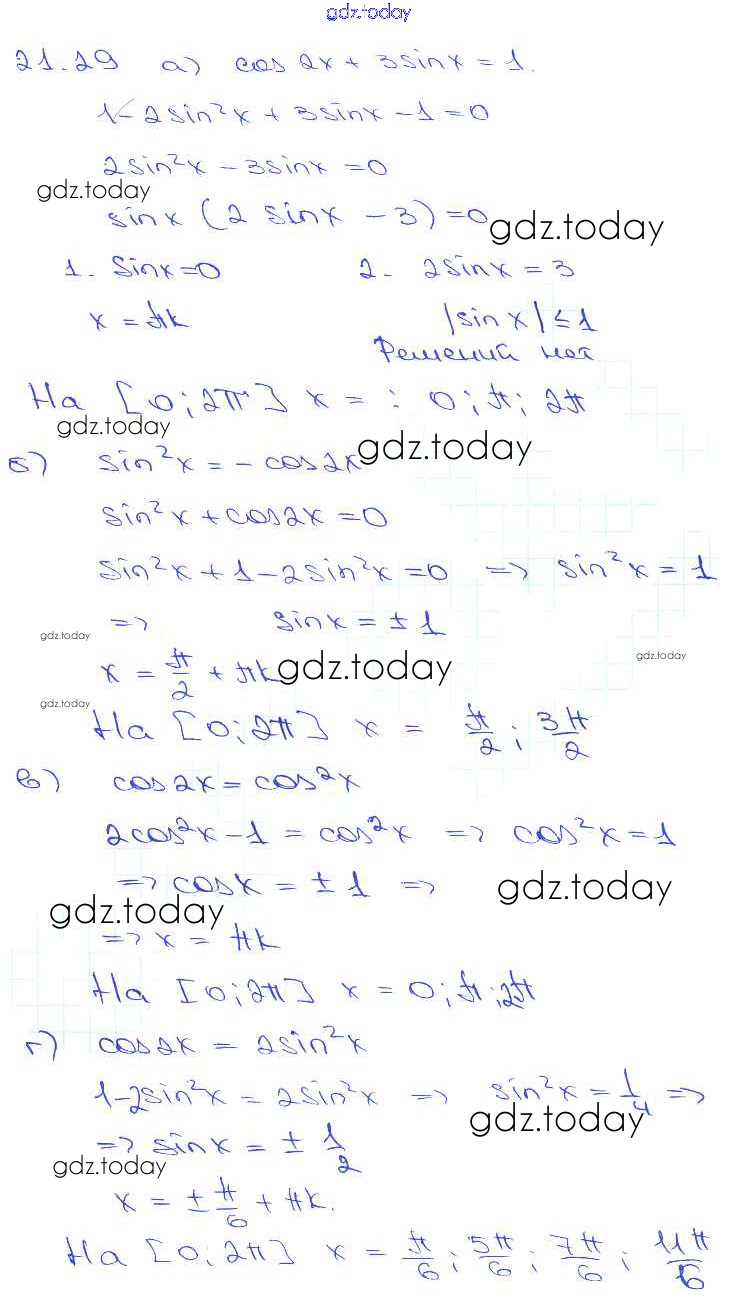 gdz.today
21.29 а) cos 2x + 3 sin x = 1.
1 - 2 sin²x + 3 sin x - 1 = 0
2 sin²x - 3 sin x = 0
gdz.today
sin x (2 sin x - 3) = 0 gdz.today
1. sin x = 0 2. 2 sin x = 3
x = πk |sin x| ≤ 1
Решений нет
На [0; 2π] x = : 0; π; 2π
gdz.today
б) sin²x = - cos 2x gdz.today
sin²x + cos 2x = 0
sin²x + 1 - 2 sin²x = 0 => sin²x = 1
=> sin x = ± 1
gdz.today
x = π/2 + πk gdz.today gdz.today
gdz.today
На [0; 2π] x = π/2; 3π/2
в) cos 2x = cos²x
2 cos²x - 1 = cos²x => cos²x = 1
=> cos x = ± 1 => gdz.today
gdz.today
=> x = πk
На [0; 2π] x = 0; π; 2π
г) cos 2x = 2 sin²x
1 - 2 sin²x = 2 sin²x => sin²x = 1/4 =>
gdz.today
=> sin x = ± 1/2
gdz.today
x = ± π/6 + πk.
На [0; 2π] x = π/6; 5π/6; 7π/6; 11π/6